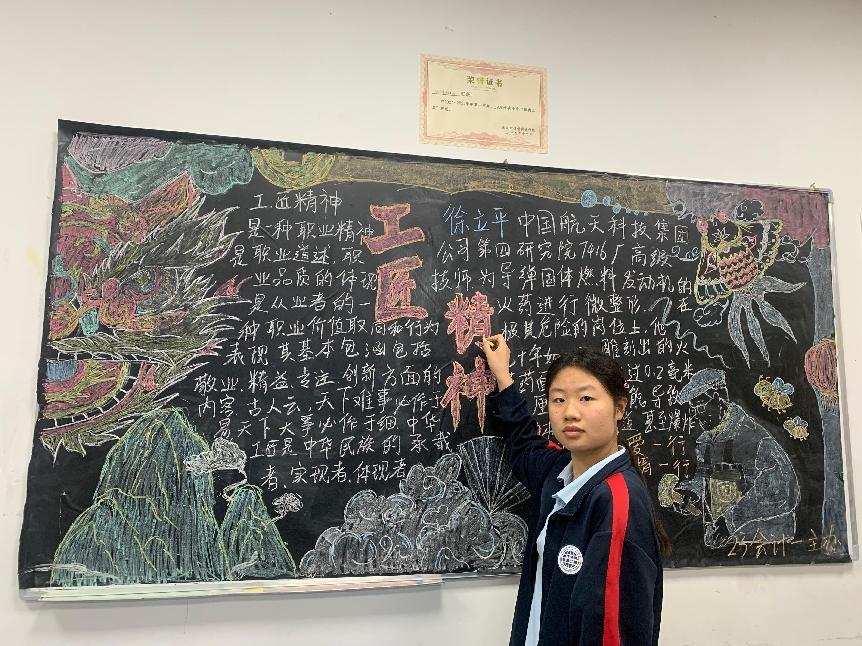 荣誉证书
工匠精神
工匠精神
是一种职业精神
是职业道述、职
业品质的体现
是从业者的一
种职业价值取向和行为
表现其基本包涵包括
敬业、精益、专注、创新方面的
内容、古人云、天下难事必作于
易、天下大事必作于细、中华
工匠是中华民族的承载
者、实现者、体现者
徐立平中国航天科技集团
公司第四研究院7416厂高级
技师为导弹固体燃料发动机的
火药进行微整形、在
极其危险的岗位上、他
十年如 雕刻出的火
药 过0.2毫米
能导致
甚至爆炸
爱一行
一行
23会计一主办